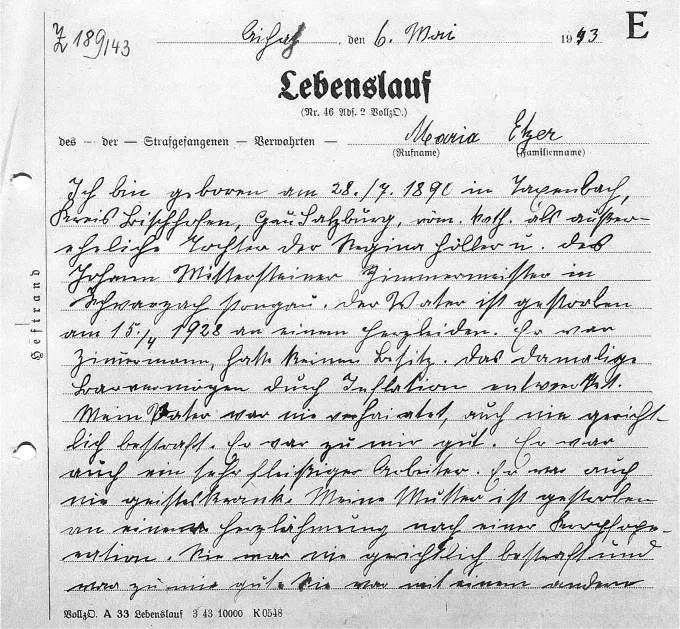 Z 189/43
Aichach, den 6. Mai 1943 E
Lebenslauf
(Nr. 46 Abs. 2 VollzO.)
des — der — Strafgefangenen — Verwahrten — Maria Etzer
(Rufname) (Familienname)
Ich bin geboren am 28./7. 1890 in Taxenbach,
Kreis Bischhofen, Gau Salzburg, röm. kath. als außer-
eheliche Tochter der Regina Höller u. des
Johann Mittersteiner Zimmermeister in
Schwarzach Pongau. Der Vater ist gestorben
am 15./4 1928 an einem Herzleiden. Er war
Zimmermann, hatte keinen Besitz. Das damalige
Barvermögen durch Inflation entwertet.
Mein Vater war nie verheiratet, auch nie gericht-
lich bestraft. Er war zu mir gut. Er war
auch ein sehr fleißiger Arbeiter. Er war auch
nie geisteskrank. Meine Mutter ist gestorben
an einer Herzlähmung nach einer Kropfope-
ration. Sie war nie gerichtlich bestraft und
war zu mir gut. Sie war mit einem andern
Heftrand
VollzO. A 33 Lebenslauf 3 43 10000 K 0548